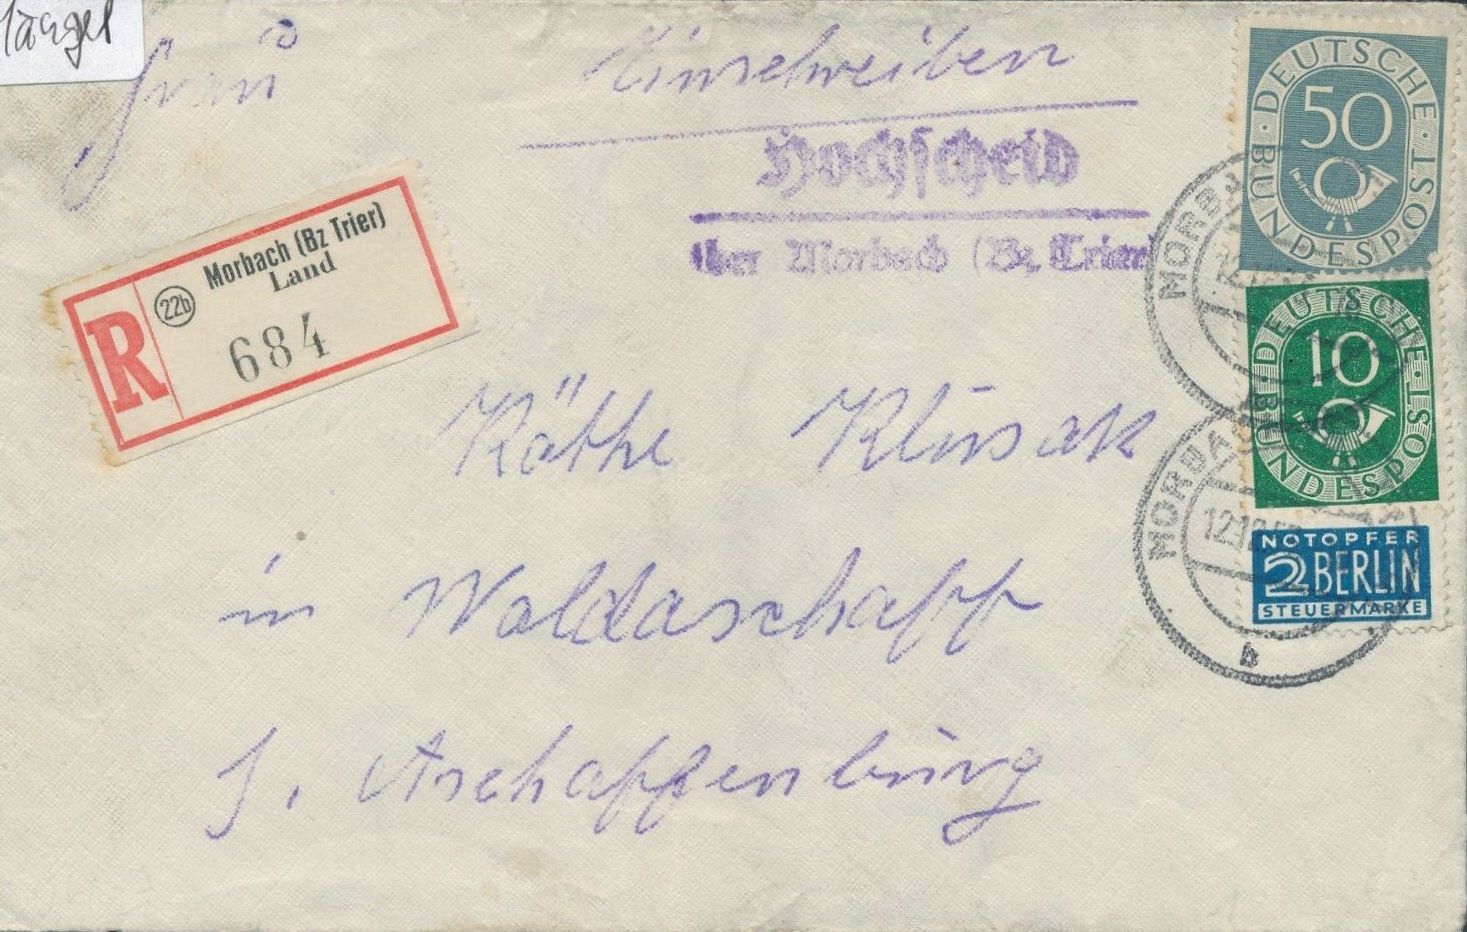 Mängel
Frau
Einschreiben
Hochscheid
über Morbach (Bz. Trier)
Morbach (Bz Trier)
Land
22b
R
684
DEUTSCHE BUNDESPOST
50
DEUTSCHE BUNDESPOST
10
NOTOPFER
2 BERLIN
STEUERMARKE
MORBACH
MORBACH
b
Käthe Klusak
in Waldaschaff
b. Aschaffenburg